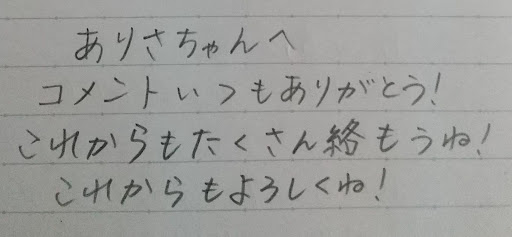 ありさちゃんへ
コメントいつもありがとう!
これからもたくさん絡もうね!
これからもよろしくね!